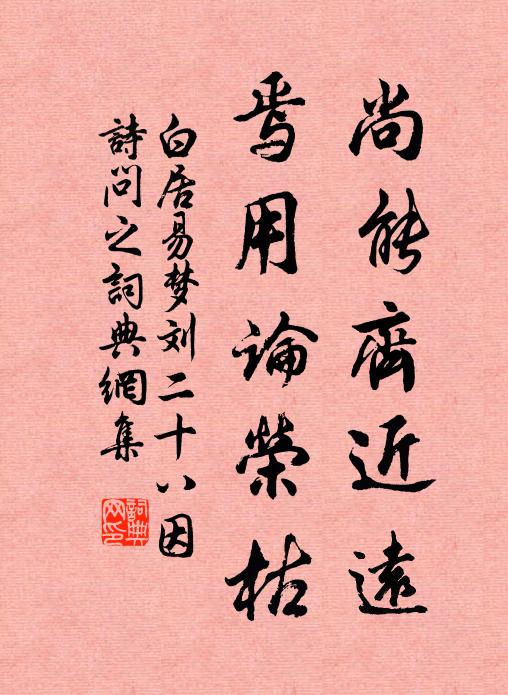 尚能齊近遠
焉用論榮枯
白居易梦刘二十八因
詩問之詞典網集
詞典
网印